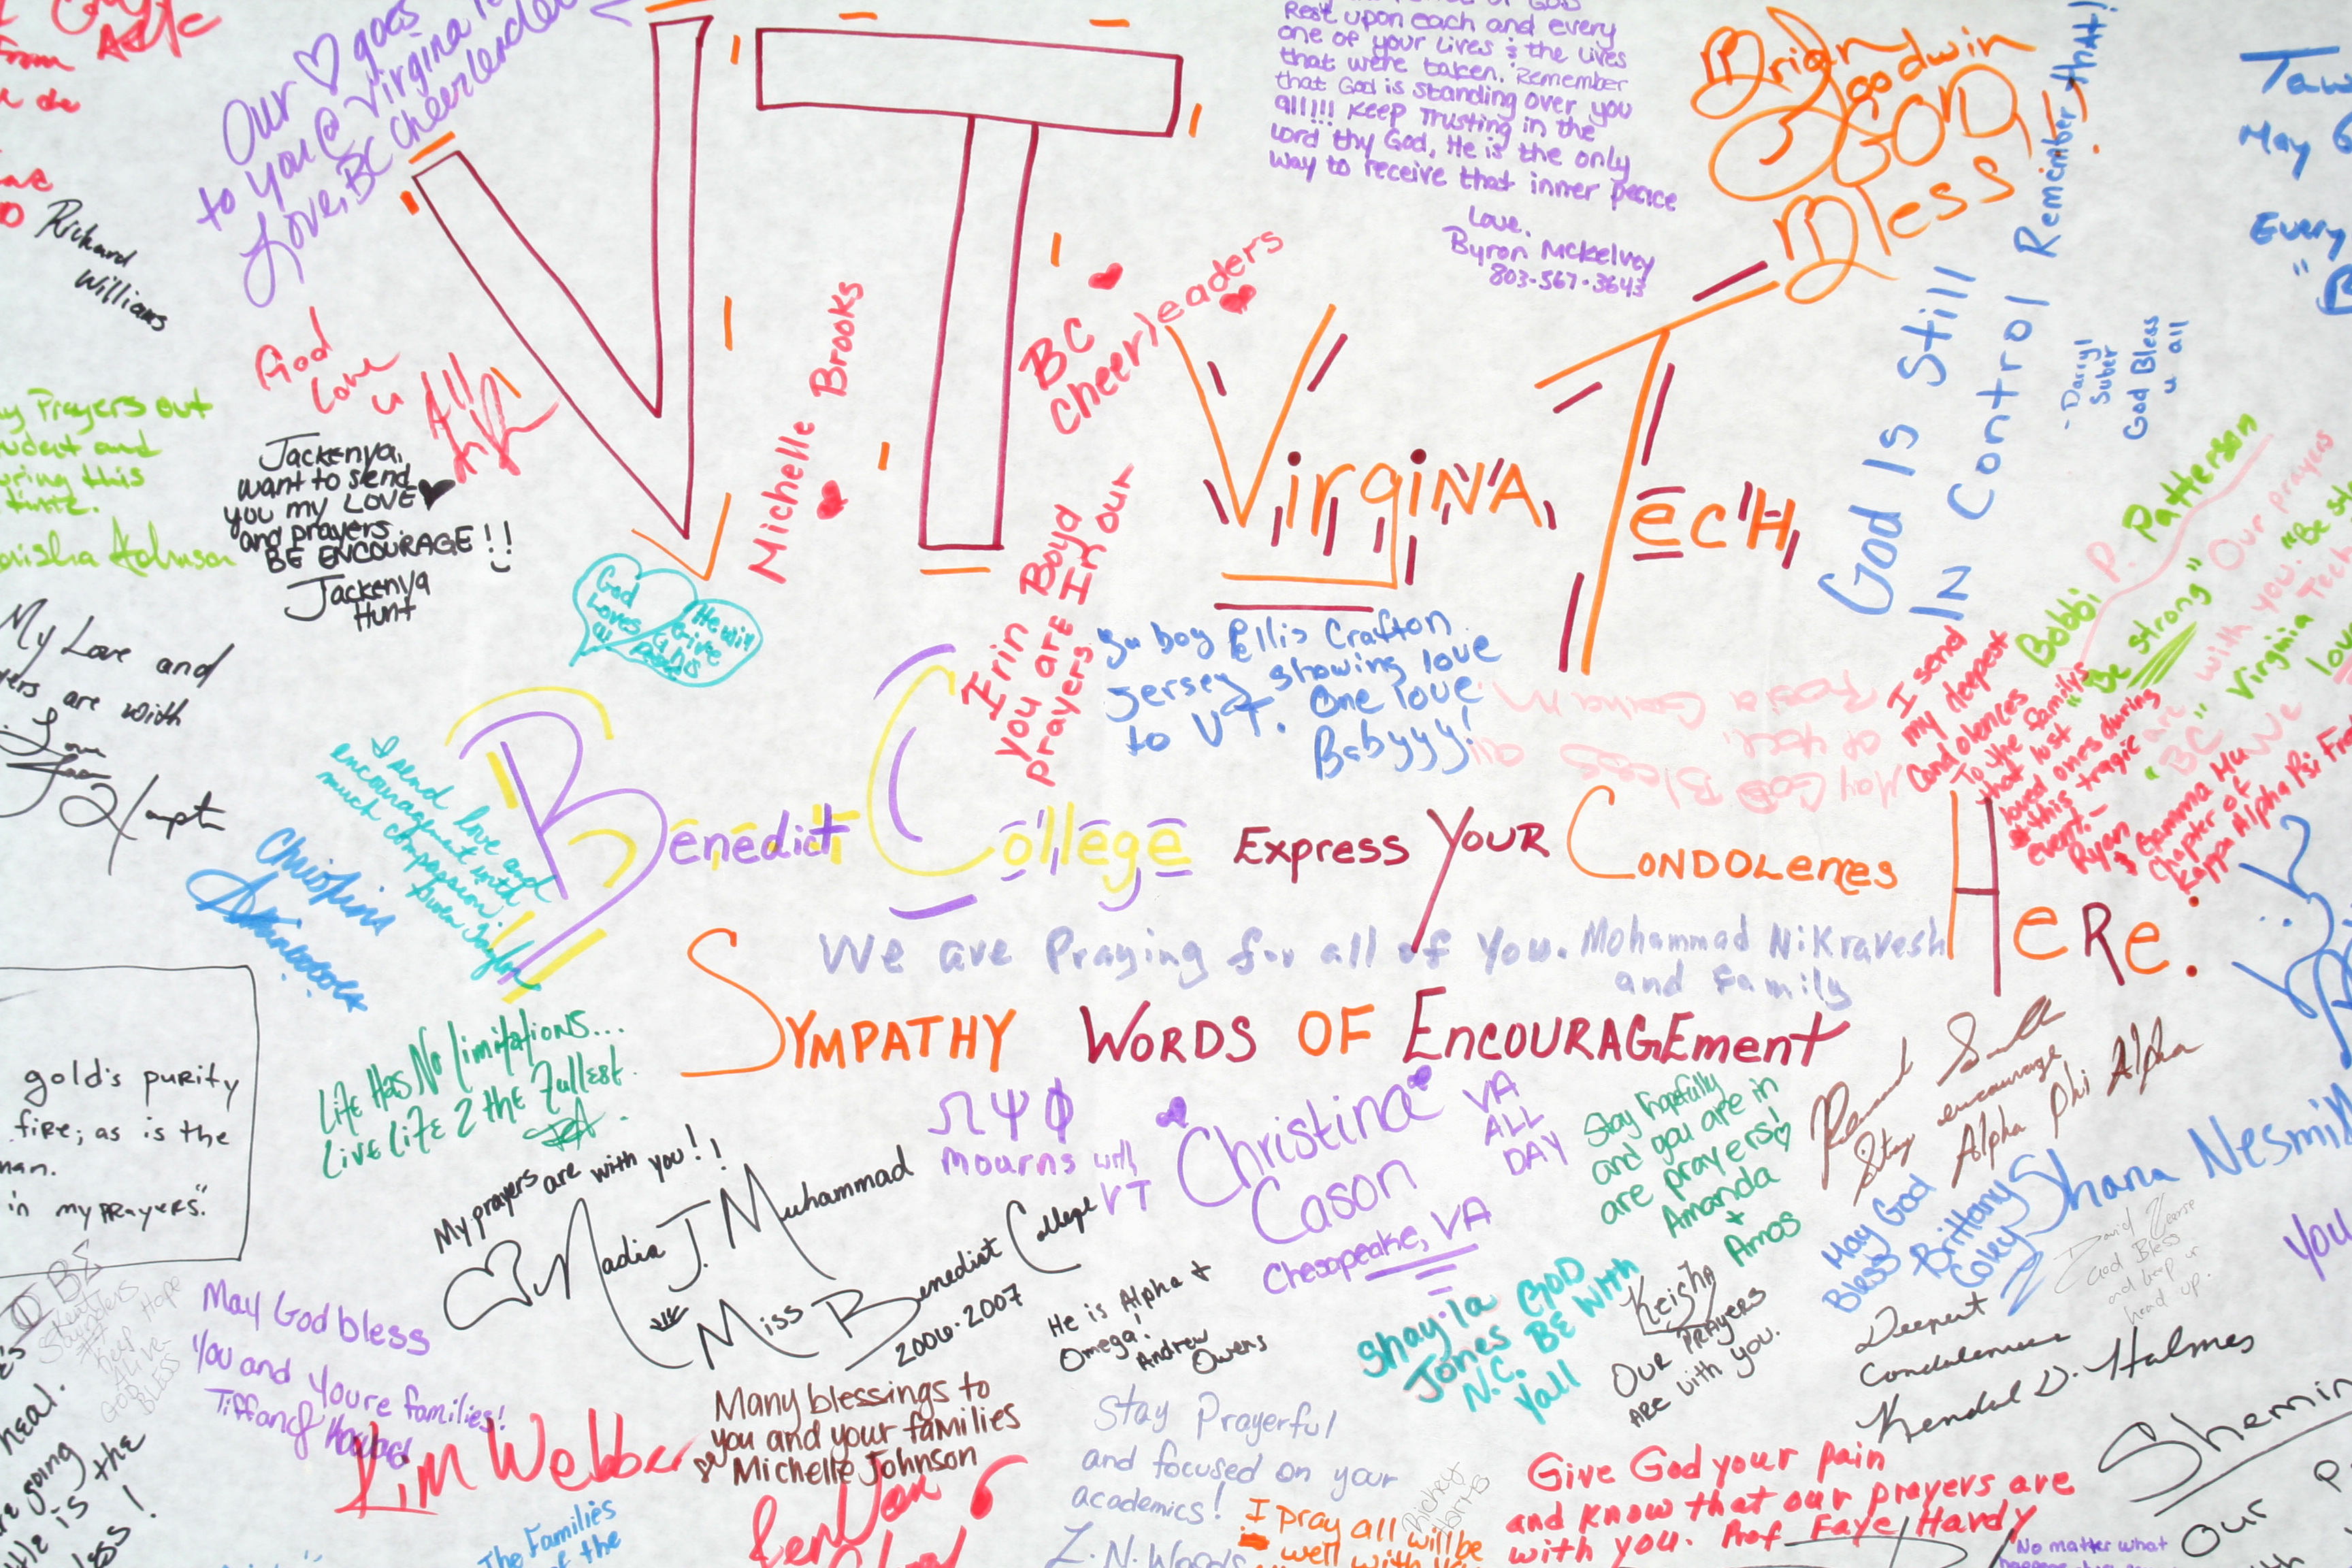 Our ♡ goes
to you @ Virginia
Love, BC Cheerleaders
VT
Rest upon each and every
one of your lives & the lives
that were taken. Remember
that God is standing over you
all!!! Keep Trusting in the
Lord thy God, He is the only
way to receive that inner peace
Love,
Byron McKelvey
803-567-3643
Brian
Godwin
GOD
Bless
God Is Still
IN Control Remember that!
Darryl
Suber
God Bless
u all
May
Every
From
Richard
Williams
God
Love
u
All
Michelle Brooks
BC
Cheerleaders
VirgiNA TECH
Prayers out
and
this
time.
Johnson
Jackenya,
want to send
you my LOVE
and prayers
BE ENCOURAGE!!
Jackenya
Hunt
God
Loves
u
He will
Give
Erin Boyd
you are In our
prayers
Ya boy Ellis Crafton
Jersey showing love
to VT. One love
Babyyy!
May GOD Bless all
Bobbi P. Patterson
"Be strong"
Our prayers
are with you.
"BC"
Virginia Tech
I send
my deepest
Condolences
To the familys
that lost
loved ones during
this tragic
event.
Ryan
Gamma Mu
Chapter of
Kappa Alpha Psi
My Love and
are with
Love
I send love and
encouragement with
much compassion.
Christina
Benedict College Express Your CONDOLENCES HERE.
We are Praying for all of You. Mohammad Nikravesh
and Family
SYMPATHY WORDS OF ENCOURAGEment
gold's purity
fire; as is the
man.
in my PRAYERS."
Life Has No limitations...
Live Life 2 the Fullest.
My prayers are with you!!
Nadia J. Muhammad
Miss Benedict College
2006-2007
ΩΨΦ
mourns with
VT
Christina
Cason
Chesapeake, VA
VA
ALL
DAY
Stay hopefully
and you are in
are prayers!♡
Amanda
+
Amos
Stay encourage
Alpha Phi Alpha
May God
Bless
Brittany
Coley
Shana Nesmith
David
God Bless
and keep ur
head up.
Saunders
Keep Hope
Alive-
GOD
BLESS
May God bless
You and Youre families!
Tiffany
He is Alpha +
Omega!
Andrew
Owens
Shayla
Jones GOD
N.C. BE WITH
Yall
Keisha
OUR PRAYERS
ARE with you.
Deepest
Condolences
Kendal D. Holmes
heal.
going
is the
Kim Webber
Many blessings to
you and your families
Michelle Johnson
Stay Prayerful
and focused on your
academics!
Z.N. Woods
I pray all will be
well with
Rickey
Give God your pain
and know that our prayers are
with you. Prof Faye Hardy
Our
You
No matter what
happens
The Families
of the